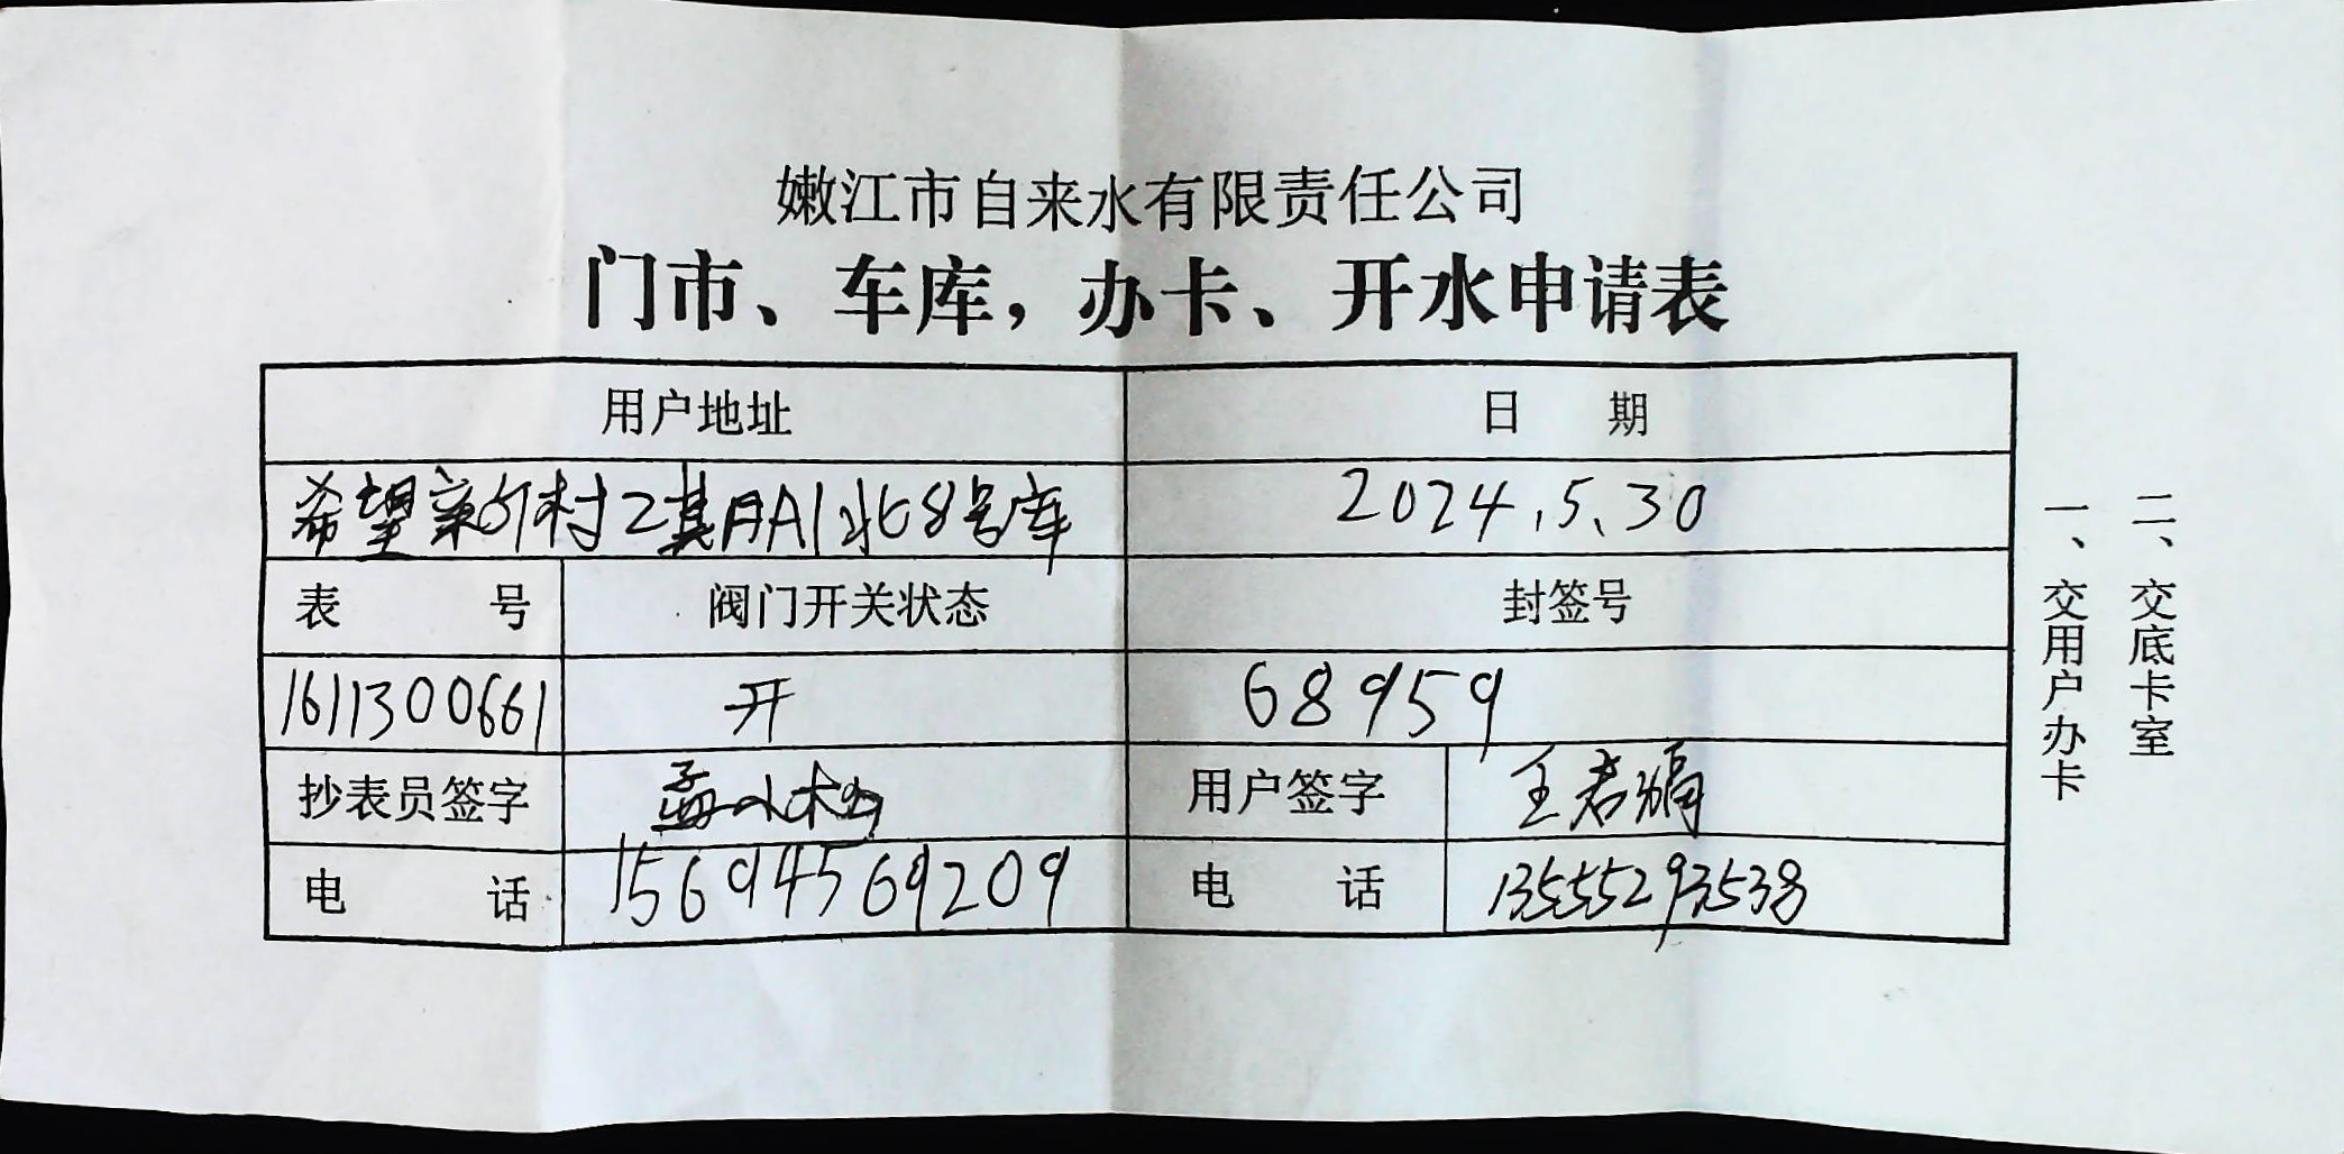 嫩江市自来水有限责任公司
门市、车库，办卡、开水申请表
用户地址 日 期
希望新村2期A1北8号库 2024.5.30
表 号 阀门开关状态 封签号
1611300661 开 68959
抄表员签字 孟小松 用户签字 王君
电 话 15694569209 电 话 13555293538
一、交用户办卡
二、交底卡室